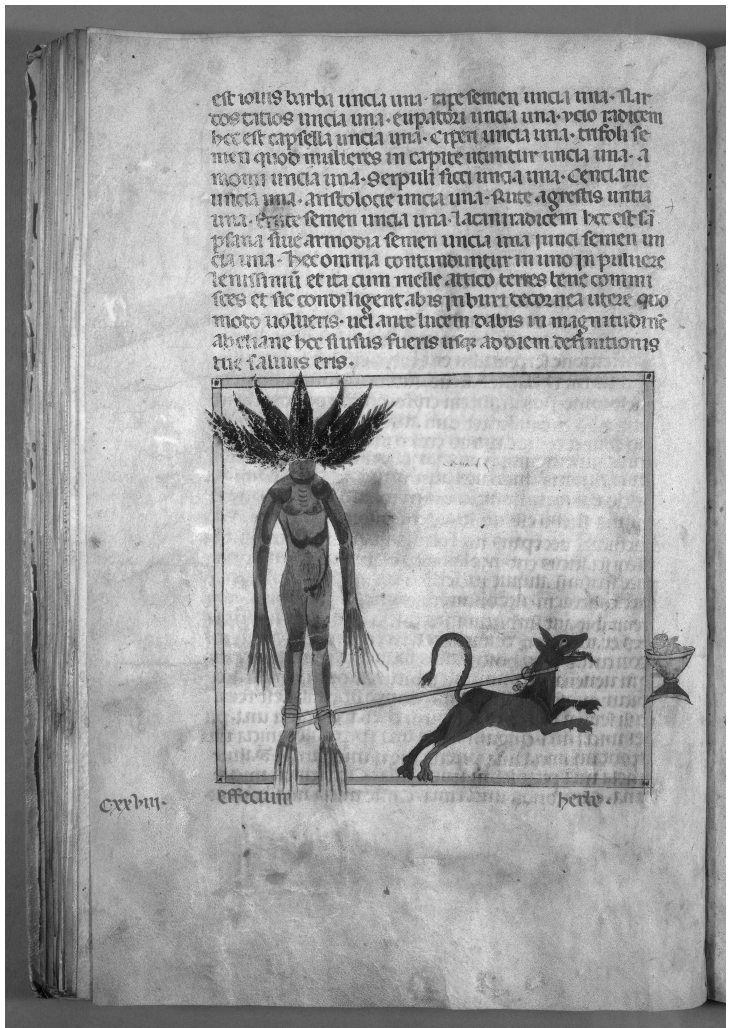 est iouis barba uncia una· rape semen uncia una· Nar
dostatios uncia una· eupatori uncia una· ycio radicem
hec est capsella uncia una· Ciperi uncia una· trifoli se
men quod mulieres in capite utuntur uncia una· a
momu uncia una· Serpuli sicci uncia una· Genciane
uncia una· aristolocie uncia una· Rute agrestis untia
una· semen uncia una· radicem hec est
siue armoria semen uncia una junci semen un
cia una· hec omnia contunduntur in uno jn puluere
lenissimū et ita cum melle attico teres bene commi
sces et sic condi utere quo
modo uolueris· uel ante lucem dabis in magnitudinē
abellane hec fueris usqʒ ad diem definitionis
tue saluus eris·
Cxxviii·
effectum
herbe·